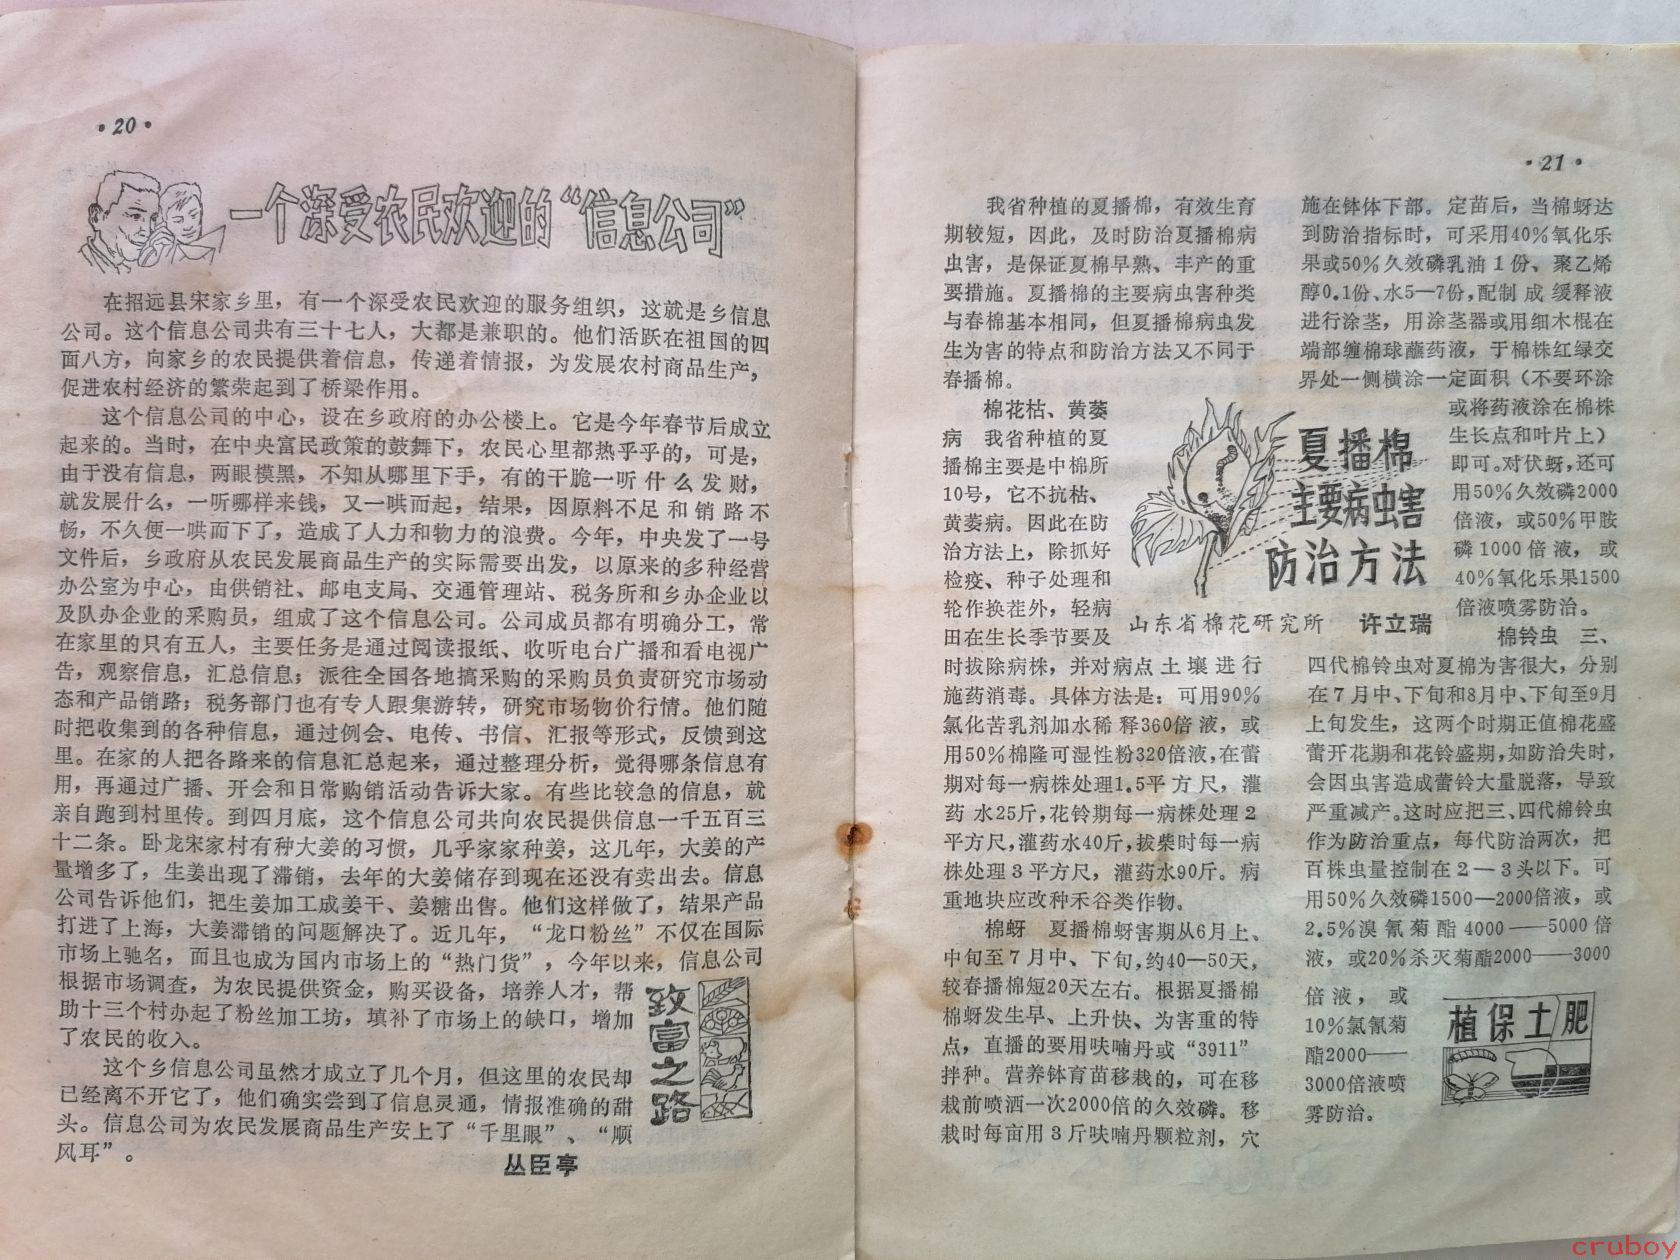 ·20·
一个深受农民欢迎的“信息公司”
在招远县宋家乡里，有一个深受农民欢迎的服务组织，这就是乡信息
公司。这个信息公司共有三十七人，大都是兼职的。他们活跃在祖国的四
面八方，向家乡的农民提供着信息，传递着情报，为发展农村商品生产，
促进农村经济的繁荣起到了桥梁作用。
这个信息公司的中心，设在乡政府的办公楼上。它是今年春节后成立
起来的。当时，在中央富民政策的鼓舞下，农民心里都热乎乎的，可是，
由于没有信息，两眼模黑，不知从哪里下手，有的干脆一听什么发财，
就发展什么，一听哪样来钱，又一哄而起，结果，因原料不足和销路不
畅，不久便一哄而下了，造成了人力和物力的浪费。今年，中央发了一号
文件后，乡政府从农民发展商品生产的实际需要出发，以原来的多种经营
办公室为中心，由供销社、邮电支局、交通管理站、税务所和乡办企业以
及队办企业的采购员，组成了这个信息公司。公司成员都有明确分工，常
在家里的只有五人，主要任务是通过阅读报纸、收听电台广播和看电视广
告，观察信息，汇总信息；派往全国各地搞采购的采购员负责研究市场动
态和产品销路；税务部门也有专人跟集游转，研究市场物价行情。他们随
时把收集到的各种信息，通过例会、电传、书信、汇报等形式，反馈到这
里。在家的人把各路来的信息汇总起来，通过整理分析，觉得哪条信息有
用，再通过广播、开会和日常购销活动告诉大家。有些比较急的信息，就
亲自跑到村里传。到四月底，这个信息公司共向农民提供信息一千五百三
十二条。卧龙宋家村有种大姜的习惯，几乎家家种姜，这几年，大姜的产
量增多了，生姜出现了滞销，去年的大姜储存到现在还没有卖出去。信息
公司告诉他们，把生姜加工成姜干、姜糖出售。他们这样做了，结果产品
打进了上海，大姜滞销的问题解决了。近几年，“龙口粉丝”不仅在国际
市场上驰名，而且也成为国内市场上的“热门货”，今年以来，信息公司
根据市场调查，为农民提供资金，购买设备，培养人才，帮
助十三个村办起了粉丝加工坊，填补了市场上的缺口，增加
了农民的收入。
这个乡信息公司虽然才成立了几个月，但这里的农民却
已经离不开它了，他们确实尝到了信息灵通，情报准确的甜
头。信息公司为农民发展商品生产安上了“千里眼”、“顺
风耳”。
丛臣亭
致富之路
·21·
我省种植的夏播棉，有效生育
期较短，因此，及时防治夏播棉病
虫害，是保证夏棉早熟、丰产的重
要措施。夏播棉的主要病虫害种类
与春棉基本相同，但夏播棉病虫发
生为害的特点和防治方法又不同于
春播棉。
棉花枯、黄萎
病　我省种植的夏
播棉主要是中棉所
10号，它不抗枯、
黄萎病。因此在防
治方法上，除抓好
检疫、种子处理和
轮作换茬外，轻病
田在生长季节要及
时拔除病株，并对病点土壤进行
施药消毒。具体方法是：可用90%
氯化苦乳剂加水稀释360倍液，或
用50%棉隆可湿性粉320倍液，在蕾
期对每一病株处理1.5平方尺，灌
药水25斤，花铃期每一病株处理2
平方尺，灌药水40斤，拔柴时每一病
株处理3平方尺，灌药水90斤。病
重地块应改种禾谷类作物。
棉蚜　夏播棉蚜害期从6月上、
中旬至7月中、下旬，约40—50天，
较春播棉短20天左右。根据夏播棉
棉蚜发生早、上升快、为害重的特
点，直播的要用呋喃丹或“3911”
拌种。营养钵育苗移栽的，可在移
栽前喷洒一次2000倍的久效磷。移
栽时每亩用3斤呋喃丹颗粒剂，穴
夏播棉
主要病虫害
防治方法
山东省棉花研究所　许立瑞
施在钵体下部。定苗后，当棉蚜达
到防治指标时，可采用40%氧化乐
果或50%久效磷乳油1份、聚乙烯
醇0.1份、水5—7份，配制成缓释液
进行涂茎，用涂茎器或用细木棍在
端部缠棉球蘸药液，于棉株红绿交
界处一侧横涂一定面积（不要环涂
或将药液涂在棉株
生长点和叶片上）
即可。对伏蚜，还可
用50%久效磷2000
倍液，或50%甲胺
磷1000倍液，或
40%氧化乐果1500
倍液喷雾防治。
棉铃虫　三、
四代棉铃虫对夏棉为害很大，分别
在7月中、下旬和8月中、下旬至9月
上旬发生，这两个时期正值棉花盛
蕾开花期和花铃盛期，如防治失时，
会因虫害造成蕾铃大量脱落，导致
严重减产。这时应把三、四代棉铃虫
作为防治重点，每代防治两次，把
百株虫量控制在2—3头以下。可
用50%久效磷1500—2000倍液，或
2.5%溴氰菊酯4000——5000倍
液，或20%杀灭菊酯2000——3000
倍液，或
10%氯氰菊
酯2000——
3000倍液喷
雾防治。
植保土肥
cruboy